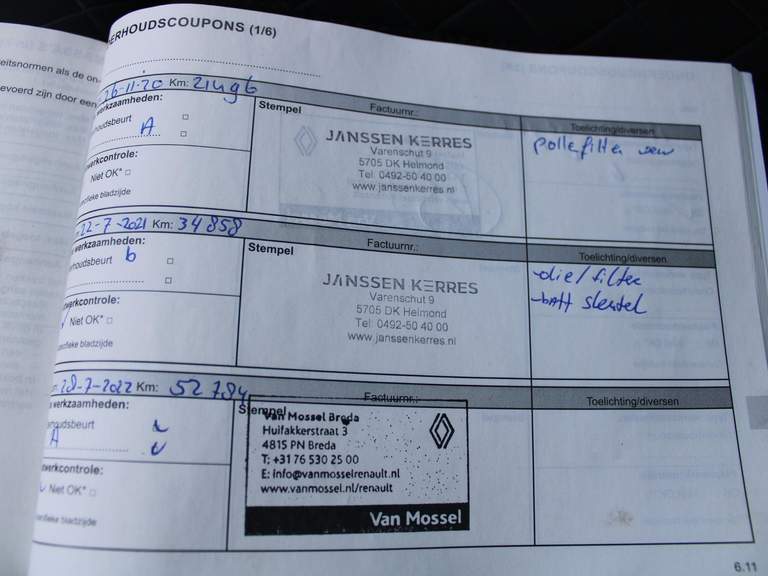 ERHOUDSCOUPONS (1/6)
eitsnormen als de on-
evoerd zijn door een
26-11-20 Km: 21496
werkzaamheden:
houdsbeurt
A
werkcontrole:
Niet OK*
ecifieke bladzijde
Stempel Factuurnr.:
JANSSEN KERRES
Varenschut 9
5705 DK Helmond
Tel. 0492-50 40 00
www.janssenkerres.nl
Van Mossel
Toelichting/diversen
pollefilter
22-7-2021 Km: 34858
werkzaamheden:
houdsbeurt b
werkcontrole:
Niet OK*
pecifieke bladzijde
Stempel Factuurnr.:
JANSSEN KERRES
Varenschut 9
5705 DK Helmond
Tel: 0492-50 40 00
www.janssenkerres.nl
Toelichting/diversen
-olie/filter
-batt sleutel
28-7-2022 Km: 52784
werkzaamheden:
houdsbeurt
A
werkcontrole:
Niet OK*
ecifieke bladzijde
Stempel Factuurnr.:
Van Mossel Breda
Huifakkerstraat 3
4815 PN Breda
T: +31 76 530 25 00
E: info@vanmosselrenault.nl
www.vanmossel.nl/renault
Van Mossel
Toelichting/diversen
6.11